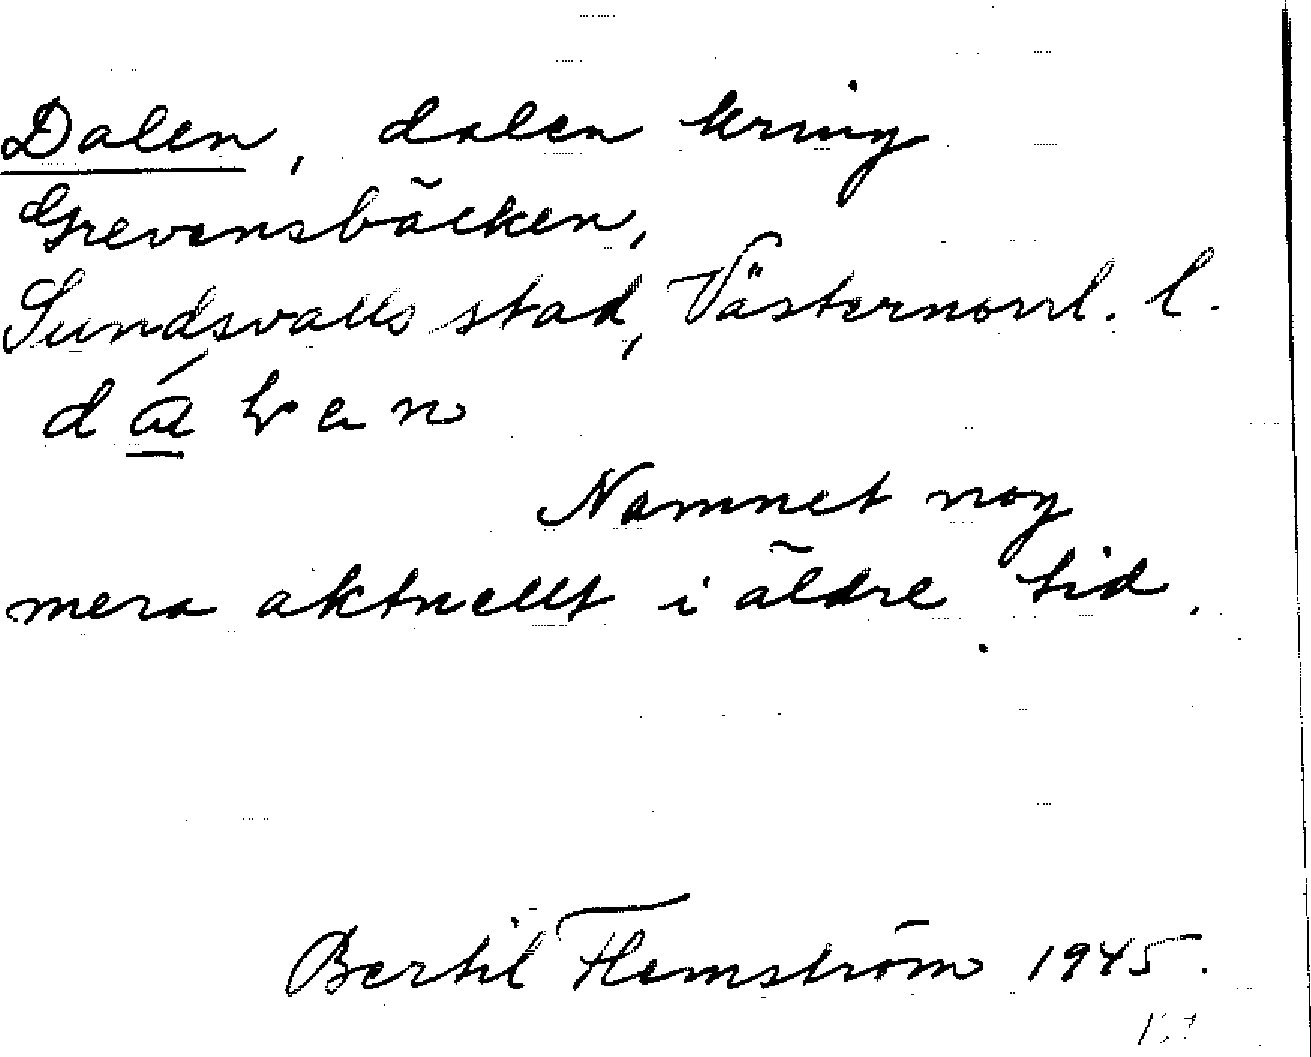 Dalen, dalen kring
Grevensbäcken,
Sundsvalls stad, Västernorrl. l.
Namnet nog
mera aktuellt i äldre tid.
Bertil Flemström 1945.